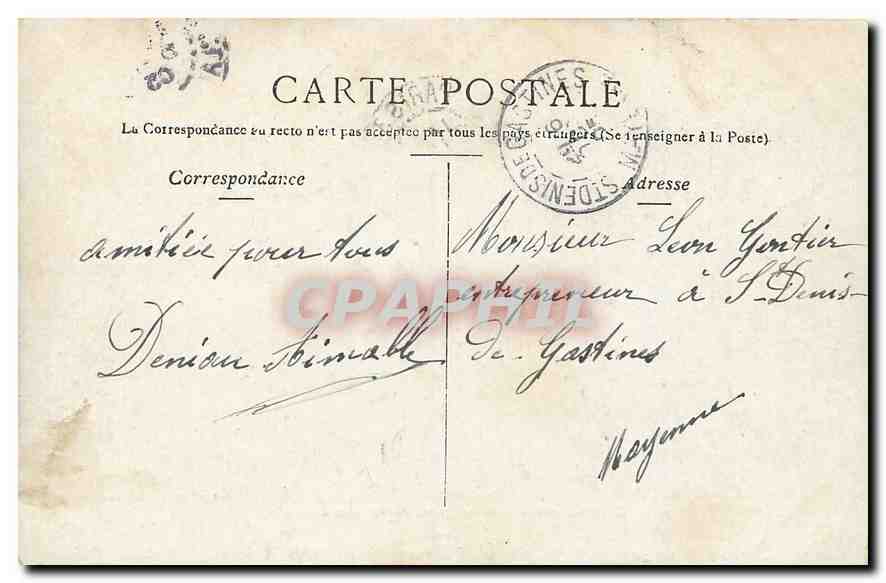 CARTE POSTALE
La Correspondance au recto n'est pas acceptée par tous les pays étrangers (Se renseigner à la Poste)
Correspondance
amitiée pour tous
Deniau Aimable
Adresse
Monsieur Leon Gontier
entrepreneur à St Denis-
de Gastines
Mayenne
ST DENIS DE GASTINES
CPAPHIL